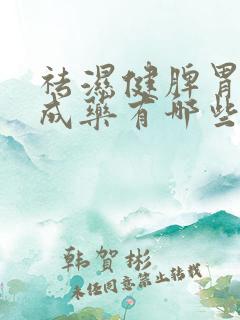 祛濕健脾胃
成藥有哪些
韩賀彬
未经同意禁止转载